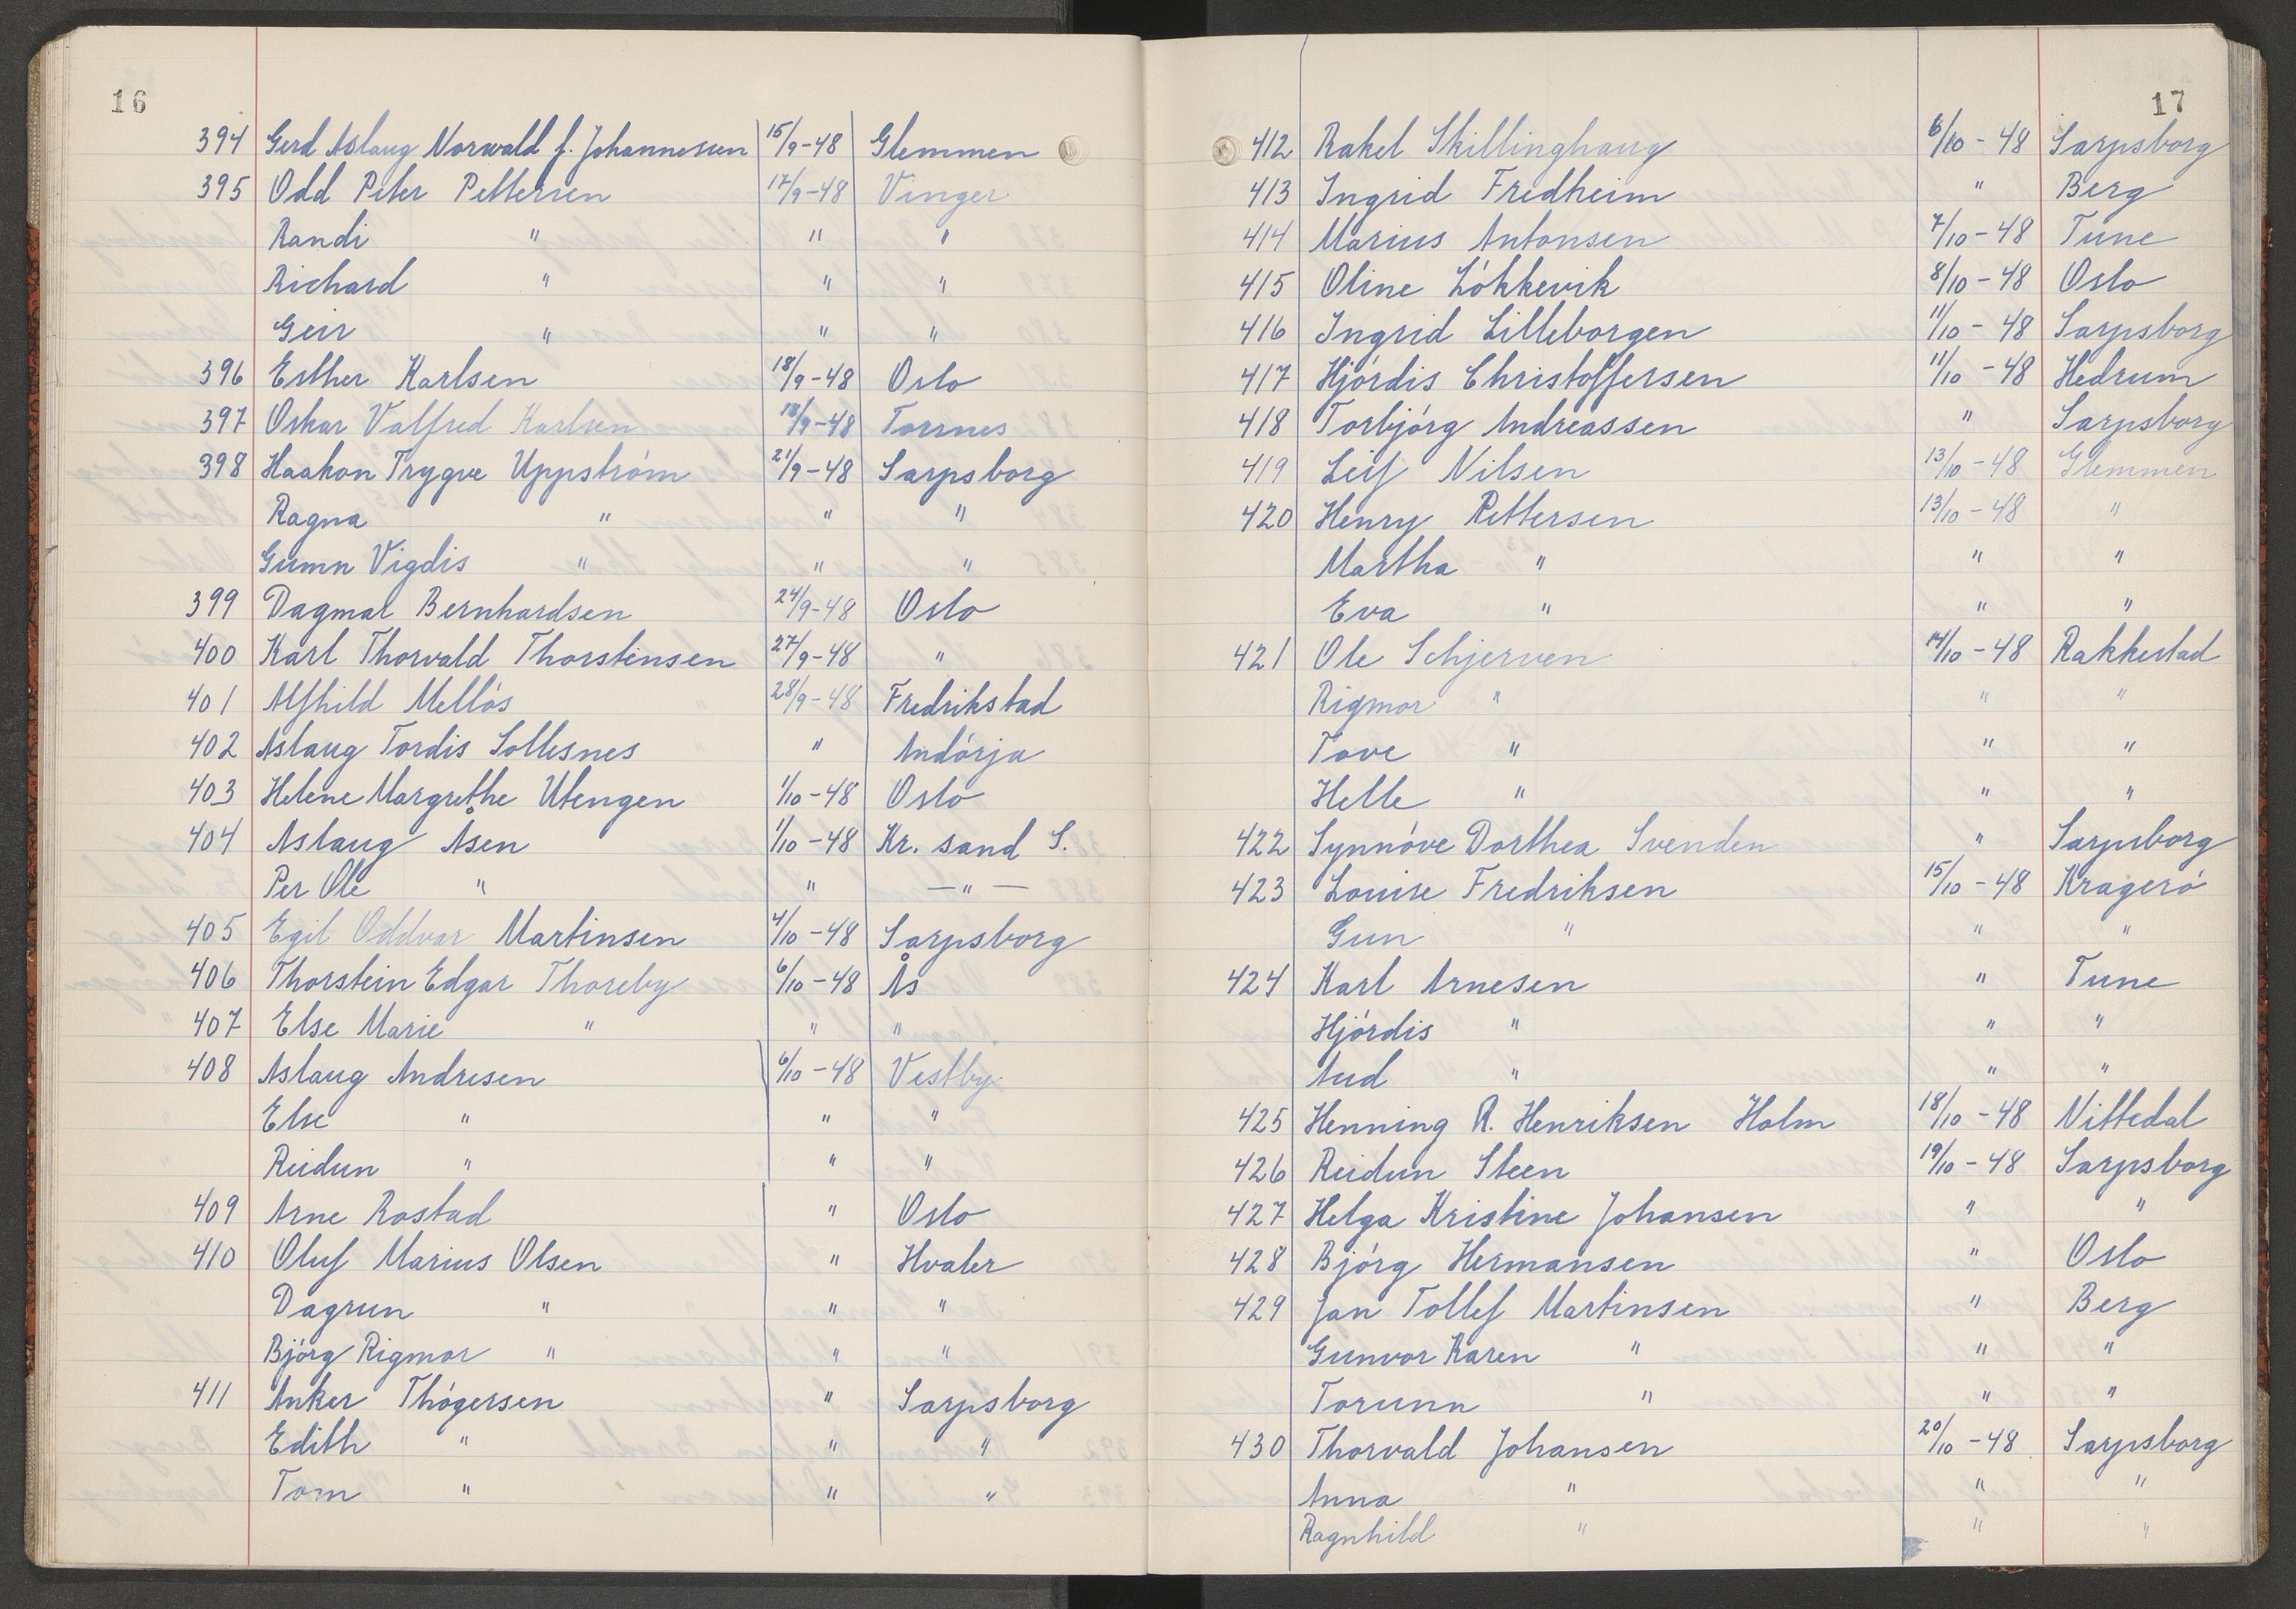 16
394 Gerd Aslaug Norwald f. Johannessen 15/9-48 Glemmen
395 Odd Peter Pettersen 17/9-48 Vinger
Randi " " "
Richard " " "
Geir " " "
396 Esther Karlsen 18/9-48 Oslo
397 Oskar Valfred Karlsen 18/9-48 Torsnes
398 Haakon Trygve Uppström 21/9-48 Sarpsborg
Ragna " " "
Gunn Vigdis " " "
399 Dagmar Bernhardsen 24/9-48 Oslo
400 Karl Thorvald Thorstensen 27/9-48 "
401 Alfhild Mellós 28/9-48 Fredrikstad
402 Aslaug Tordis Sollesnes " Andórja
403 Helene Margrethe Utengen 1/10-48 Oslo
404 Aslaug Åsen 1/10-48 Kr. sand S.
Per Ole " " — " —
405 Egil Oddvar Martinsen 4/10-48 Sarpsborg
406 Thorstein Edgar Thoreby 6/10-48 Ås
407 Else Marie " " "
408 Aslaug Andresen 6/10-48 Vestby
Else " " "
Reidun " " "
409 Arne Rostad " Oslo
410 Oluf Marius Olsen " Hvaler
Dagrun " " "
Bjórg Rigmor " " "
411 Anker Thógersen " Sarpsborg
Edith " " "
Tom " " "
17
412 Rakel Skillinghaug 6/10-48 Sarpsborg
413 Ingrid Fredheim " Berg
414 Marius Antonsen 7/10-48 Tune
415 Oline Lókkevik 8/10-48 Oslo
416 Ingrid Lilleborgen 11/10-48 Sarpsborg
417 Hjórdis Christoffersen 11/10-48 Hedrum
418 Torbjórg Andreassen " Sarpsborg
419 Leif Nilsen 13/10-48 Glemmen
420 Henry Pettersen 13/10-48 "
Martha " " "
Eva " " "
421 Ole Schjerven 14/10-48 Rakkestad
Rigmor " " "
Tove " " "
Helle " " "
422 Synnóve Dorthea Svenden " Sarpsborg
423 Louise Fredriksen 15/10-48 Krageró
Gun " " "
424 Karl Arnesen " Tune
Hjórdis " " "
Aud " " "
425 Henning R. Henriksen Holm 18/10-48 Nittedal
426 Reidun Steen 19/10-48 Sarpsborg
427 Helga Kristine Johansen " "
428 Bjórg Hermansen " Oslo
429 Jan Tollef Martinsen " Berg
Gunvor Karen " " "
Torunn " " "
430 Thorvald Johansen 20/10-48 Sarpsborg
Anna " " "
Ragnhild " " "